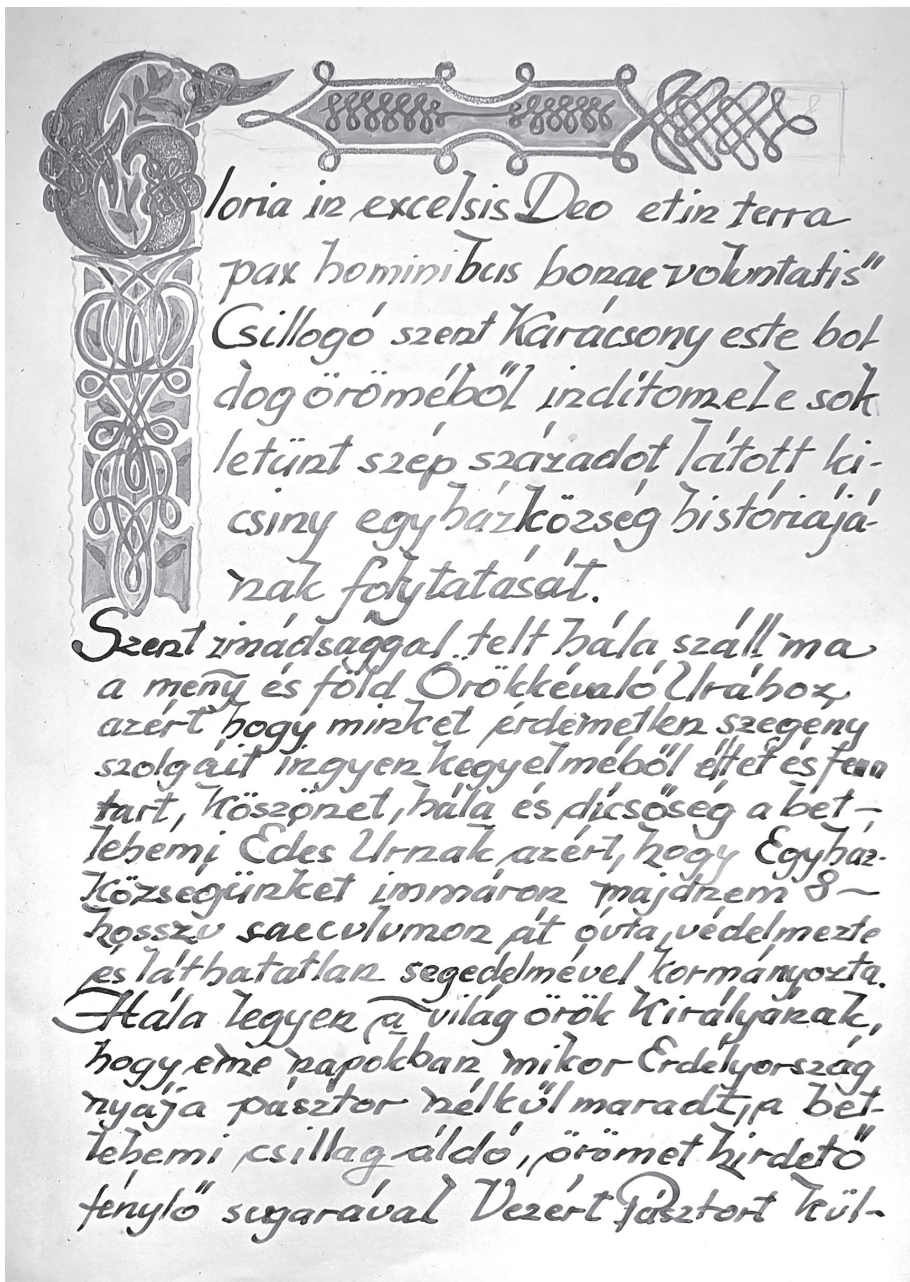 Gloria in excelsis Deo et in terra
pax hominibus bonae voluntatis"
Csillogó szent Karácsony este bol
dog öröméből indítom el e sok
letünt szép századot látott ki-
csiny egyházközség históriájá-
nak folytatását.
Szent imádsággal telt hála száll ma
a meny és föld Örökkévaló Urához,
azért hogy minket érdemetlen szegény
szolgáit ingyen kegyelméből éltet és fenn
tart, köszönet, hála és dicsőség a bet-
lehemi Édes Urnak azért, hogy Egyház-
községünket immáron majdnem 8-
hosszu saeculumon át óvta, védelmezte
és láthatatlan segedelmével kormányozta.
Hála legyen a világ örök Királyának,
hogy eme napokban mikor Erdélyország
nyája pásztor nélkül maradt, a bet-
lehemi csillag áldó, örömet hirdető
fénylő sugarával Vezért Pásztort kül-